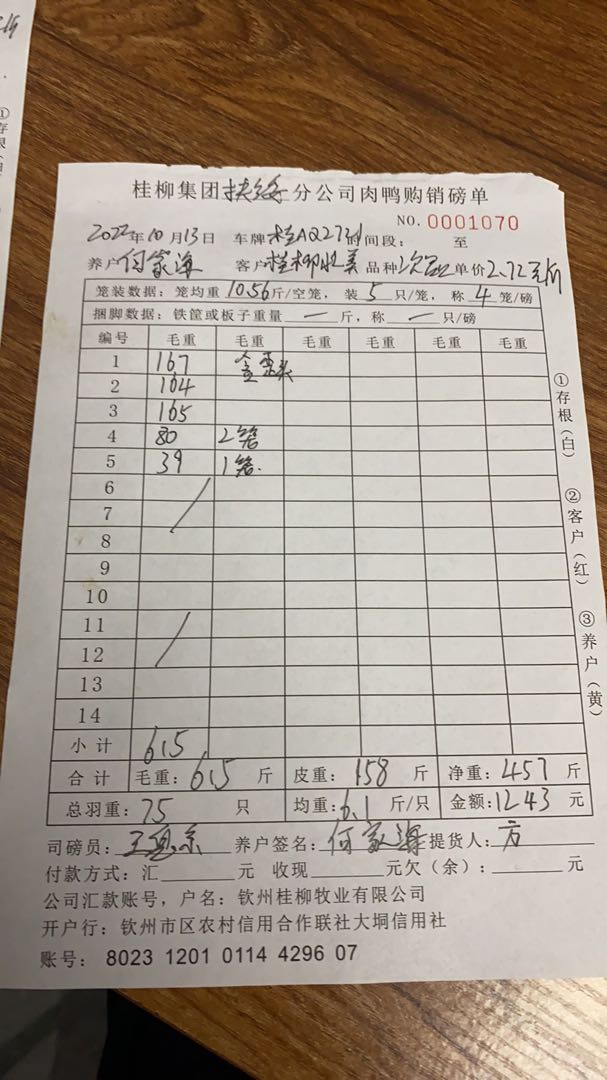 桂柳集团扶绥分公司肉鸭购销磅单
NO. 0001070
2022年10月13日 车牌桂AQ273 时间段: 至
养户何家海 客户桂柳 品种 单价2.72元/斤
笼装数据: 笼均重10.56斤/空笼, 装5只/笼, 称4笼/磅
捆脚数据: 铁筐或板子重量一斤, 称一只/磅
编号 毛重 毛重 毛重 毛重 毛重 毛重
1 167
2 164
3 165
4 80 2笼
5 39 1笼
6
7
8
9
10
11
12
13
14
小计 615
合计 毛重: 615 斤 皮重: 158 斤 净重: 457 斤
总羽重: 75 只 均重: 6.1 斤/只 金额: 1243 元
司磅员: 王 养户签名: 何家海 提货人: 方
付款方式: 汇 元 收现 元欠(余): 元
公司汇款账号, 户名: 钦州桂柳牧业有限公司
开户行: 钦州市区农村信用合作联社大垌信用社
账号: 8023 1201 0114 4296 07
①存根(白)
②客户(红)
③养户(黄)
①存根